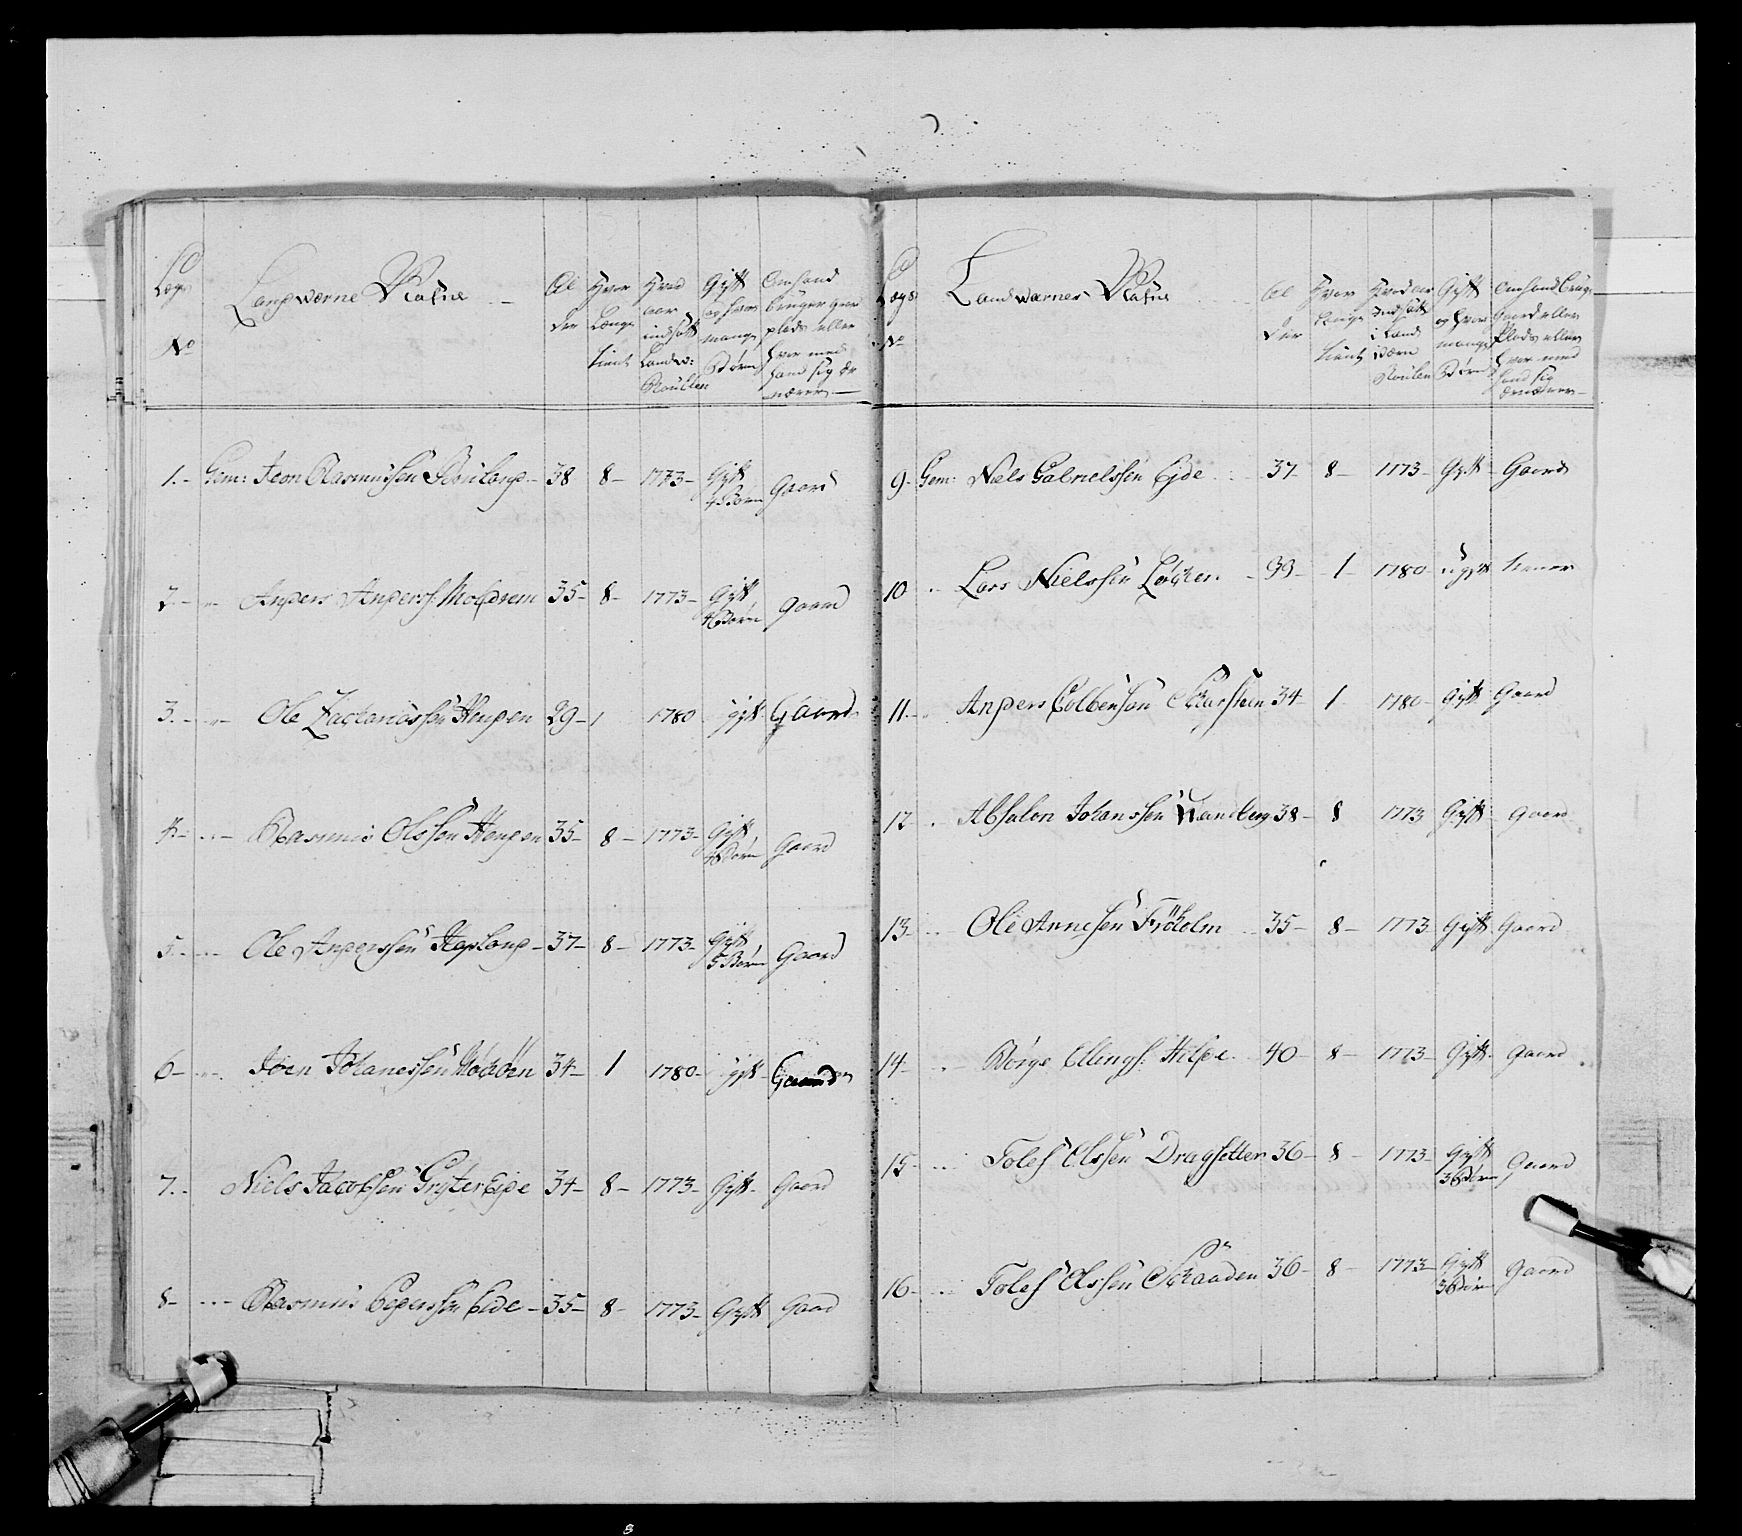 Lægs No
Landwærne Mænd
Al der
Hvor Længe tient
Hvad aar indsatt Landv: Roullen
Gift og hvor mange Børn
Om hand bruger gaar plads eller hvor med hand sig er nærer
1. Gem: Joen Rasmussen 38 8 1773 Gift 4 Børn Gaard
2 Anders Anders: Moldrem 35 8 1773 Gift 4 Børn gaard
3. Ole Zachariassen Hougen 29 1 1780 gift Gaard
4 Rasmus Olssen Hougen 35 8 1773 Gift 4 Børn Gaard
5 Ole Anderssen 37 8 1773 Gift 5 Børn Gaard
6 Joen Johanessen 34 1 1780 gift Gaard
7 Niels Jacobsen Gryter Eide 34 8 1773 Gift Gaard
8 Rasmus Pederssen Eide 35 8 1773 Gift Gaard
Lægs No
Landwærnes Mænd
Al der
Hvor Længe tient
Hvad aar Indsatt i Land Værn Roulen
Gift og hvor mange Børn
Om hand brug: Gaard eller Plads eller hvor med hand sig ernærer
9 Gem: Niels Gabrielssen Ejde 37 8 1773 Gift Gaard
10 Lars Nielssen 33 1 1780 ugift tiener
11 Anders Colbensen Skarsteen 34 1 1780 Gift Gaard
12 Absalon Johanssen Wandberg 38 8 1773 Gift Gaard
13 Ole Annesen Frøholm 35 8 1773 Gift Gaard
14 Børge Ellings: Hilde 40 8 1773 Gift Gaard
15 Tolef Olssen Dragsetter 36 8 1773 Gift 3 Børn Gaard
16 Tolef Olssen Skaaden 36 8 1773 Gift 3 Børn Gaard
8